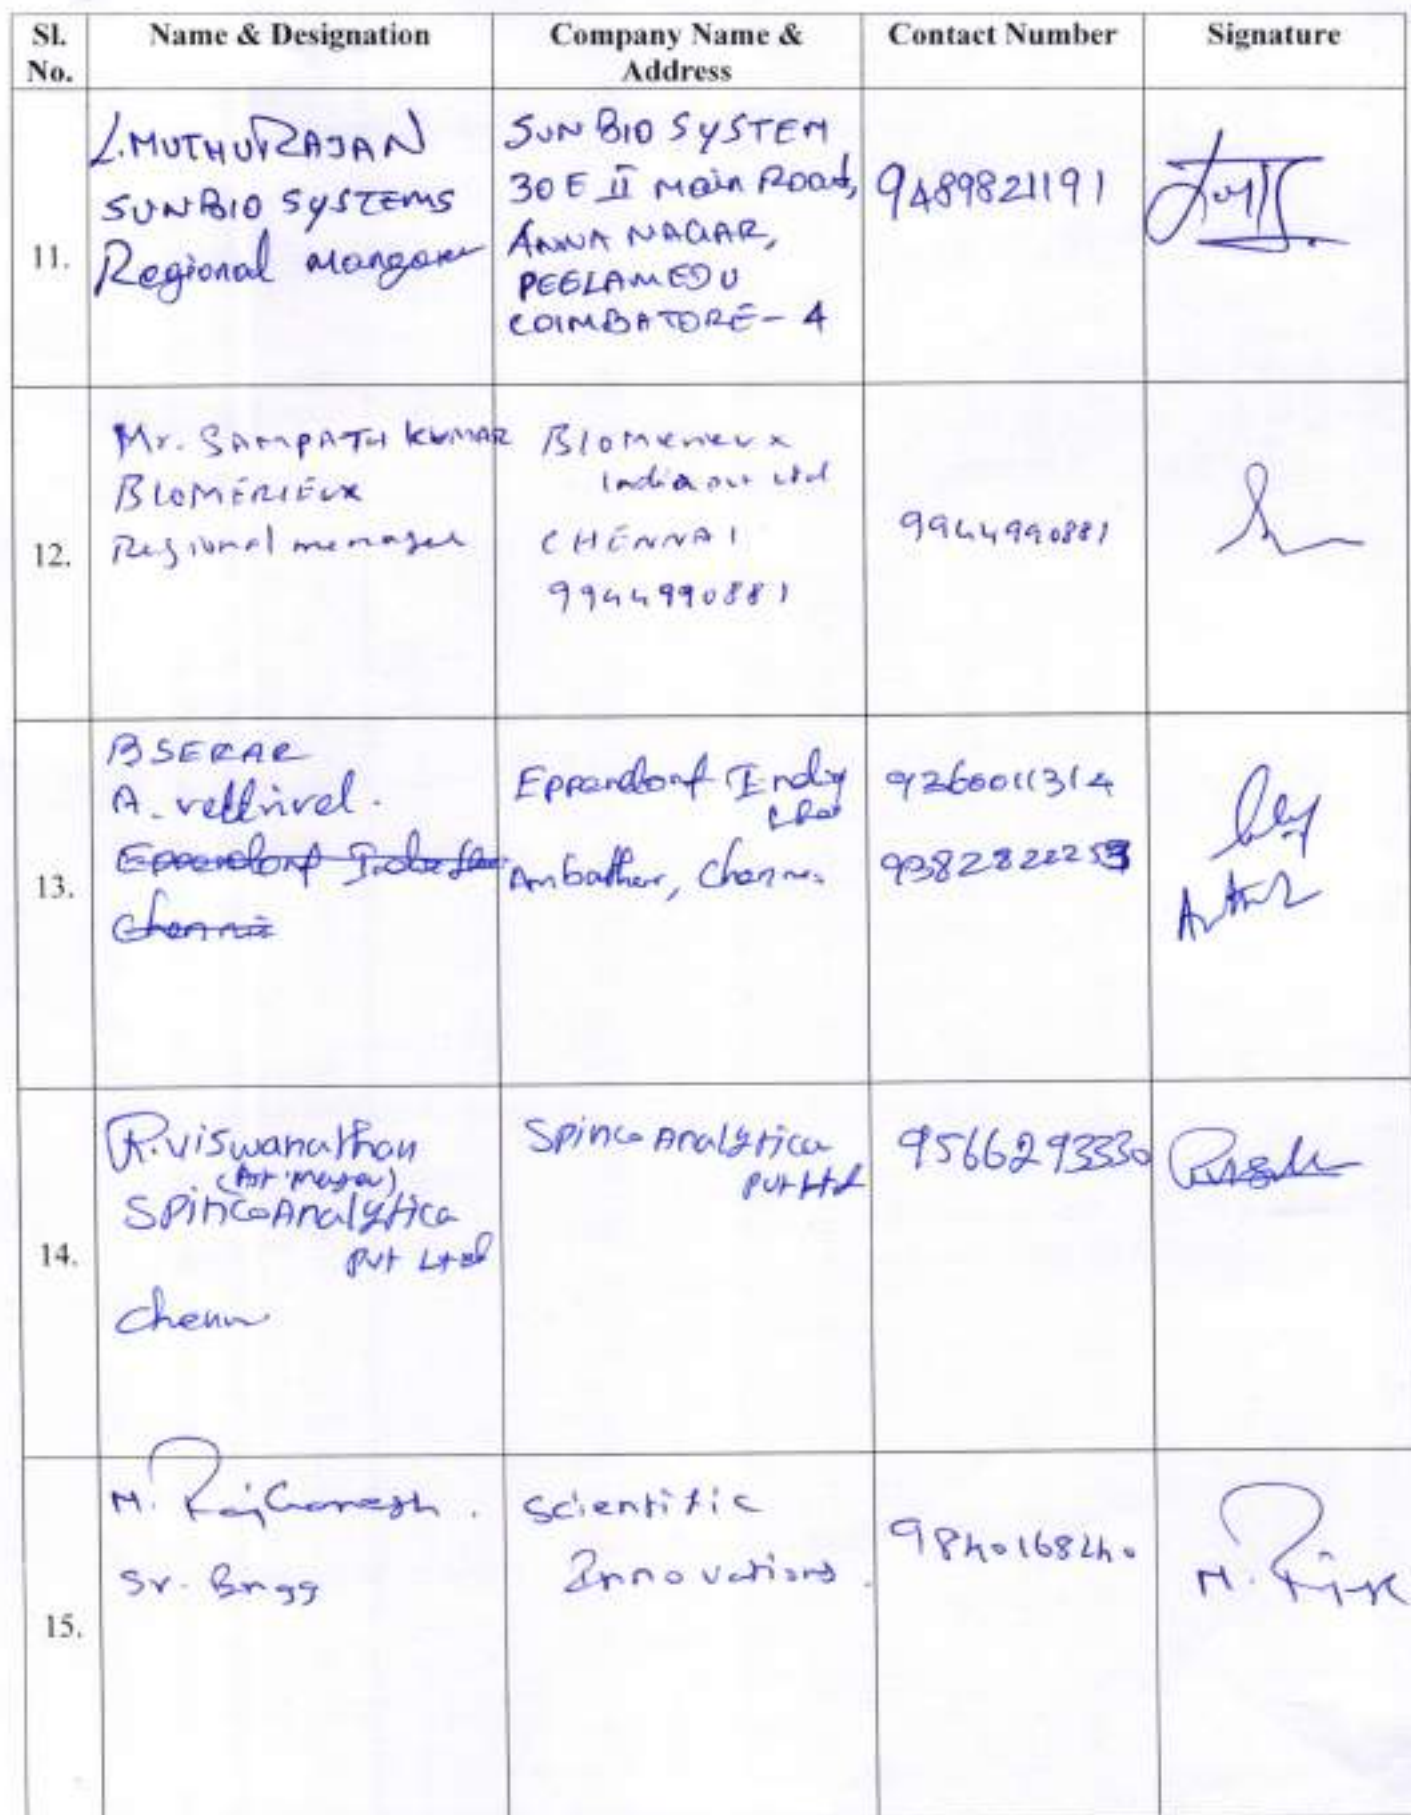 Sl. No.
Name & Designation
Company Name & Address
Contact Number
Signature
11.
L.MUTHURAJAN
SUNBIO SYSTEMS
Regional
SUN BIO SYSTEM
30 E II Main Road,
ANNA NAGAR,
PEELAMEDU
COIMBATORE - 4
9489821191
12.
Mr. SAMPATH KUMAR
BIOMERIEUX
Regional manager
Biomerieux
India Ltd
CHENNAI
9944990881
9944990881
13.
A. vettrivel.
Eppendorf India
Chennai
Eppendorf India
9260011314
14.
R.viswanathan
Spinco Analytica
Pvt Ltd
Spinco Analytica
Pvt Ltd
9566293330
15.
M. RajGanesh.
Sr. Engg
Scientific
Innovations.
9840168240
M.